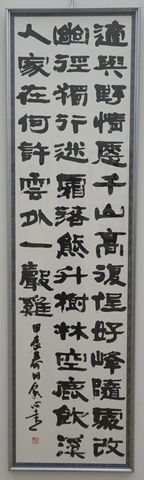 適與野情愜千山高復低好峰隨處改
幽徑獨行迷霜落熊升樹林空鹿飲溪
人家在何許雲外一聲雞
甲辰春月